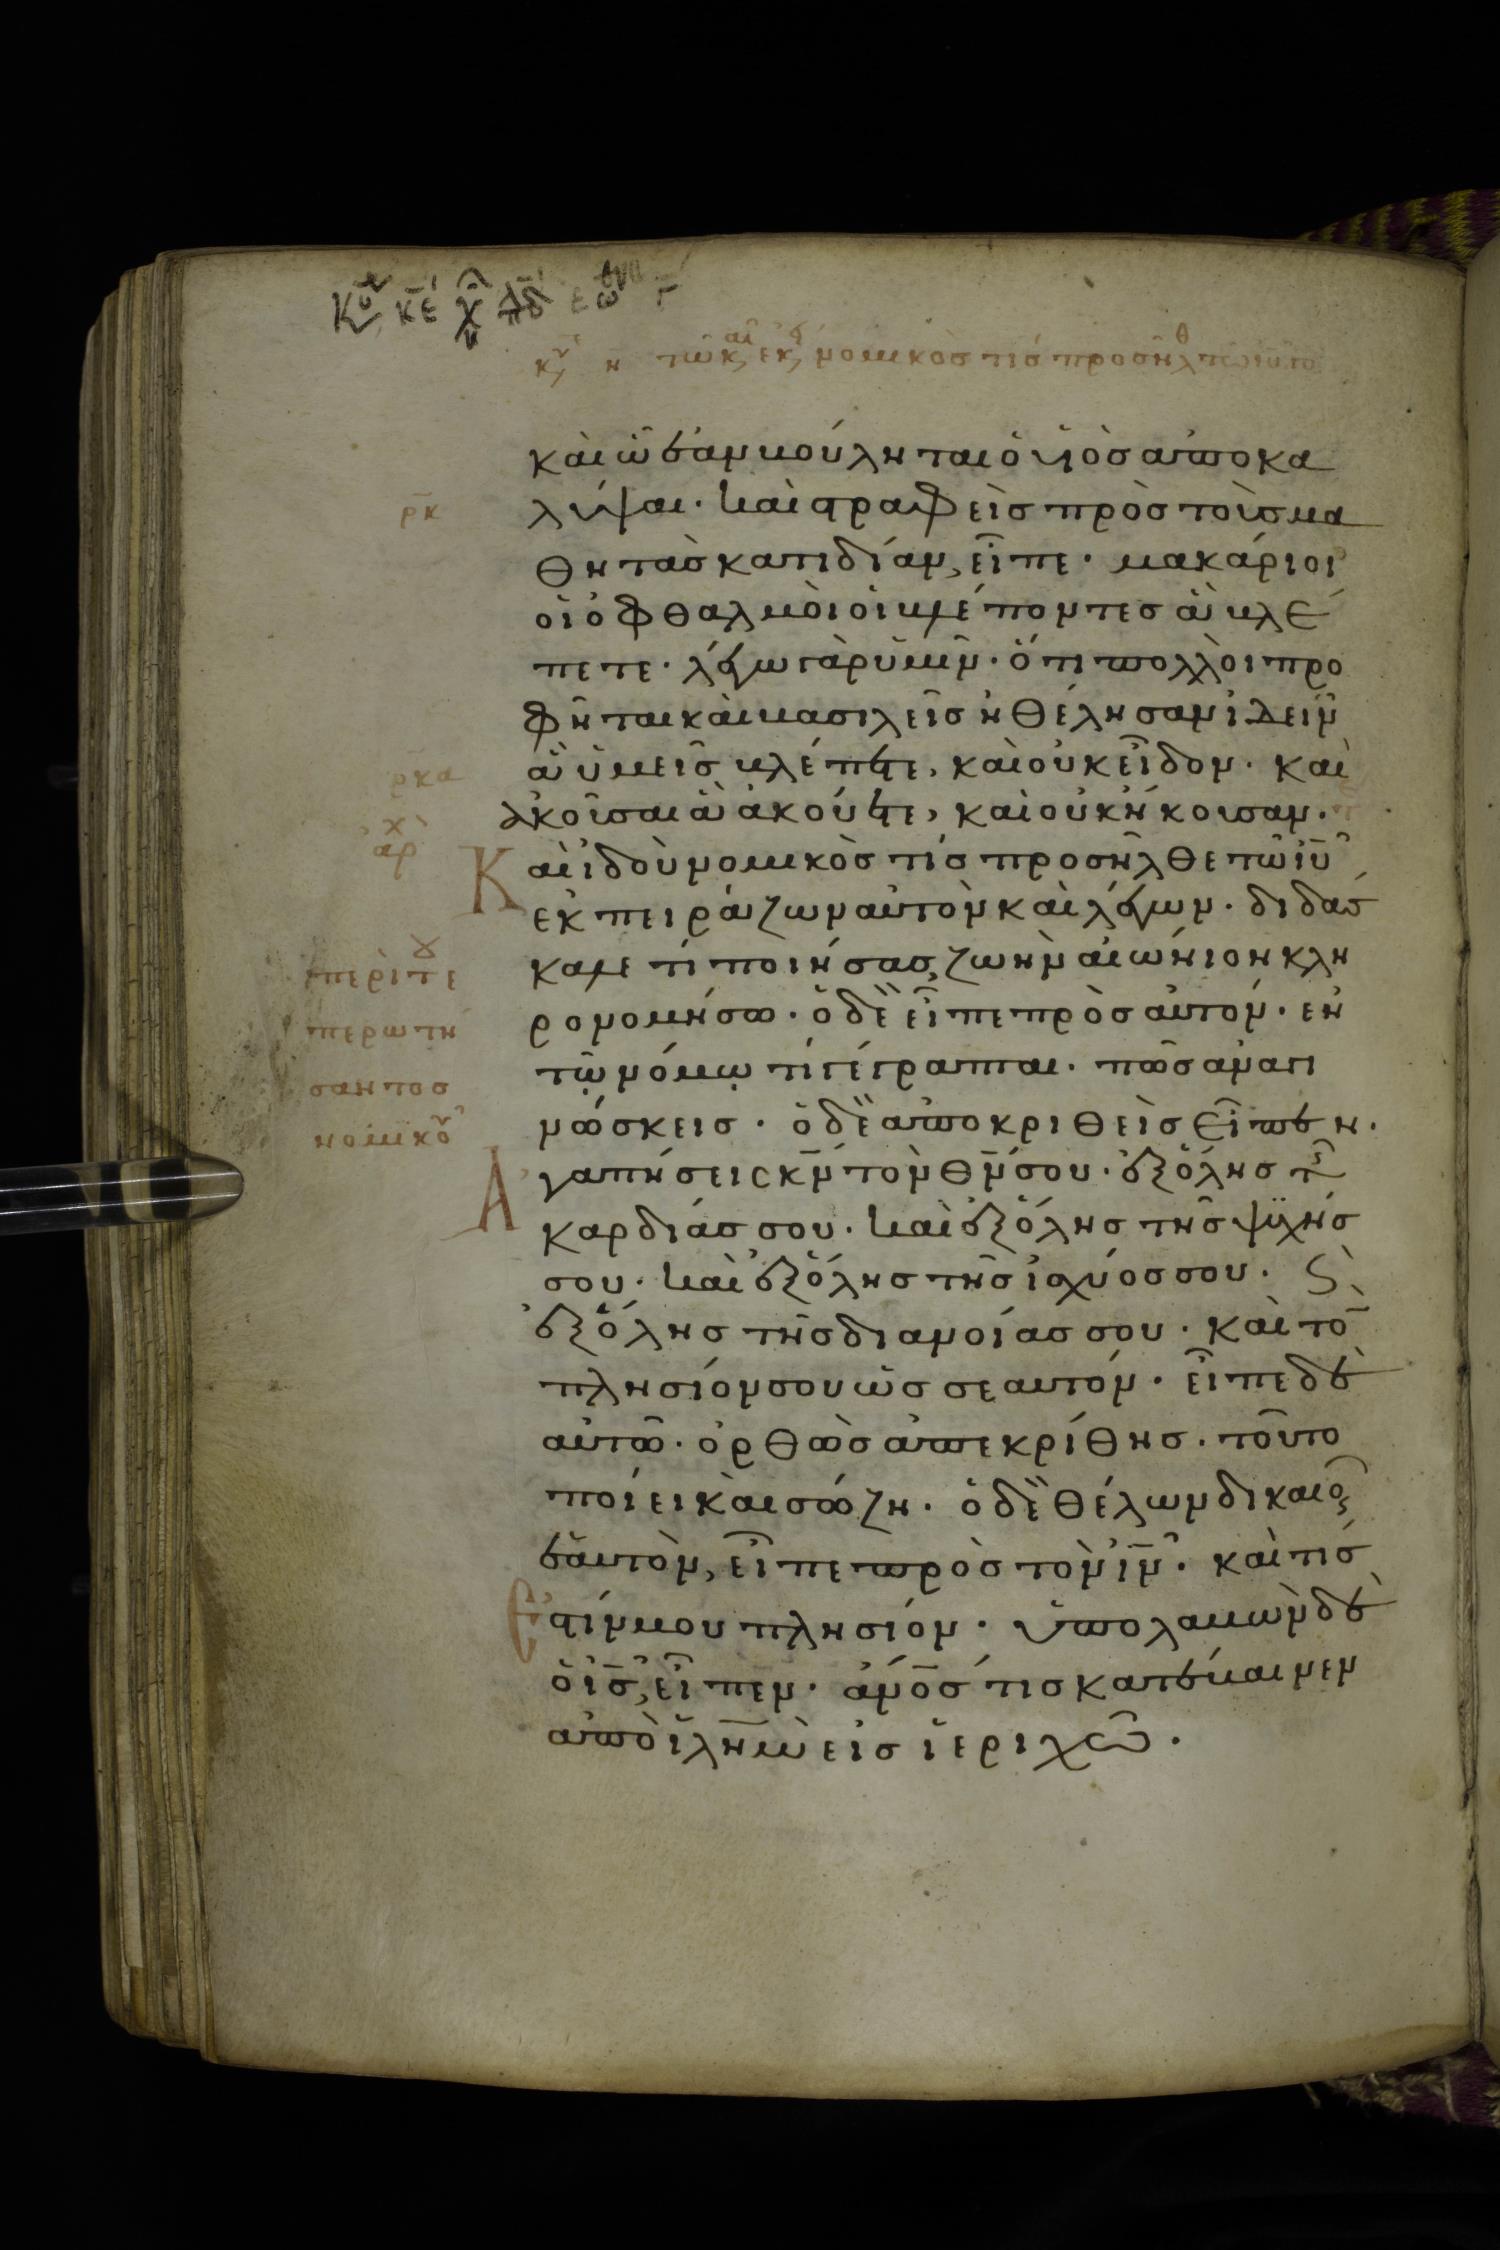 και ὧ ἐὰν βούληται ὁ υἱὸς ἀποκα
λύψαι· και στραφεὶς πρὸς τοὺς μα
θητὰς κατιδίαν, εἶπε· μακάριοι
οἱ ὀφθαλμοὶ οἱ βλέποντες ἃ βλέ
πετε· λέγω γὰρ ὑμῖν· ὅτι πολλοὶ προ
φῆται και βασιλεῖς ἠθέλησαν ἰδεῖν
ἃ ὑμεῖς βλέπετε, και οὐκ εἶδον· και
ἀκοῦσαι ἃ ἀκούετε, και οὐκ ἤκουσαν·
Και ἰδοὺ νομικὸς τίς προσῆλθε τῶ ἰῦ
ἐκπειράζων αὐτὸν και λέγων· διδάσ
καλε τί ποιήσας, ζωὴν αἰώνιον κλη
ρονομήσω· ὁ δὲ εἶπε πρὸς αὐτόν· ἐν
τῶ νόμω τί γέγραπται· πῶς ἀναγι
νώσκεις· ὁ δὲ ἀποκριθεὶς εἶπεν·
Ἀγαπήσεις κν τὸν θν σου· ἐξ ὅλης τῆς
καρδίας σου· και ἐξ ὅλης τῆς ψυχῆς
σου· και ἐξ ὅλης τῆς ἰσχύος σου· ϗ
ἐξ ὅλης τῆς διανοίας σου· και τὸ
πλησίον σου ὡς σεαυτόν· εἶπε δὲ
αὐτῶ· ὀρθῶς ἀπεκρίθης· τοῦτο
ποίει και σώζη· ὁ δὲ θέλων δικαιοῦν
ἑαυτὸν, εἶπε πρὸς τὸν ἰν· και τίς
Ἐστίν μου πλησίον· ὑπολαβὼν δὲ
ὁ ἰς, εἶπεν· ἄνος τις κατέβαινεν
ἀπὸ ἰλημ εἰς ἰεριχῶ·
ρκ
ρκα
περὶ τοῦ ἐ
περωτή
σαντος
νομικοῦ